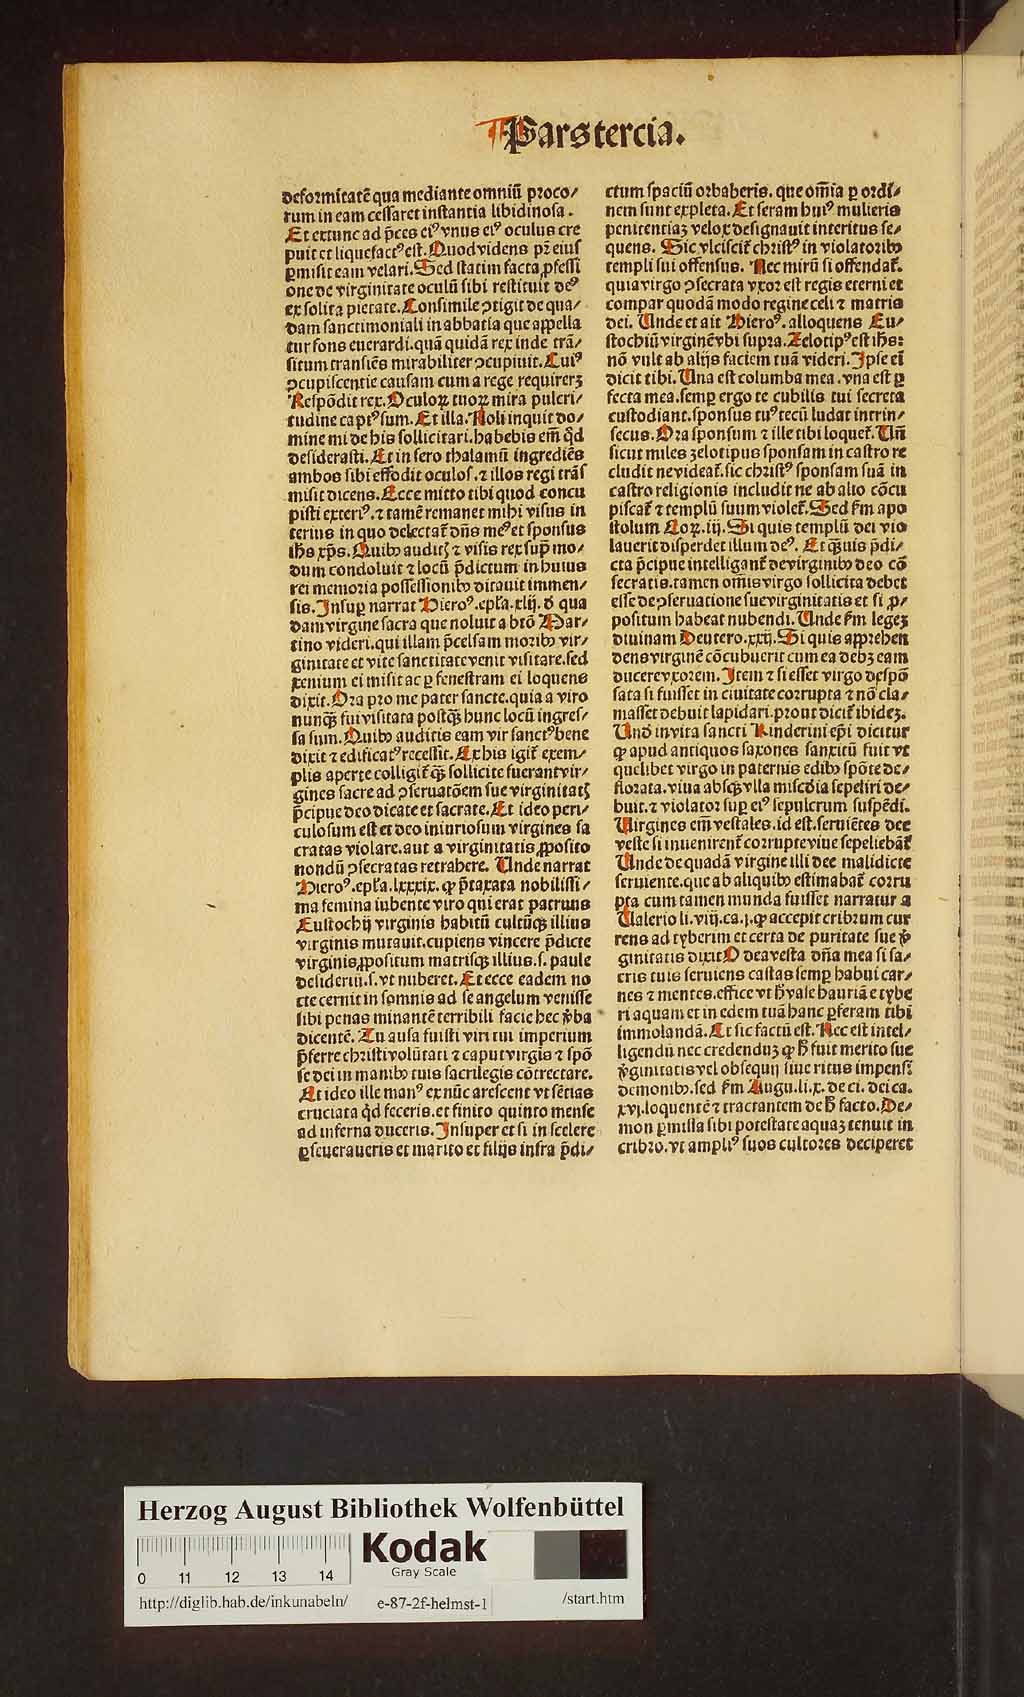 Pars tercia.
deformitatē qua mediante omniū proco⸗
rum in eam cessaret instantia libidinosa.
Et extunc ad p̄ces eiꝰ vnus eiꝰ oculus cre
puit et liquefactꝰ est. Quod videns pr̄ eius
ꝑmisit eam velari. Sed statim facta ꝓfessi
one de virginitate oculū sibi restituit deꝰ
ex solita pietate. Consimile ↄtigit de qua⸗
dam sanctimoniali in abbatia que appella
tur fons euerardi. quā quidā rex inde trā⸗
situm transiēs mirabiliter ↄcupiuit. Cuiꝰ
ↄcupiscentie causam cum a rege requirerꝫ
Respōdit rex. Oculoꝝ tuoꝝ mira pulcri⸗
tudine captꝰ sum. Et illa. Noli inquit do⸗
mine mi de his sollicitari. habebis em̄ qd̄
desiderasti. Et in sero thalamū ingrediēs
ambos sibi effodit oculos. ⁊ illos regi trās
misit dicens. Ecce mitto tibi quod concu
pisti exteriꝰ. ⁊ tamē remanet mihi visus in
terius in quo delectat᷑ dn̄s meꝰ et sponsus
ih̄s xp̄s. Quibꝰ auditꝭ ⁊ visis rex sup̄ mo⸗
dum condoluit ⁊ locū p̄dictum in huius
rei memoria possessionibꝰ ditauit immen⸗
sis. Insuꝑ narrat Hieroꝰ. ep̄la. xlij. ď qua
dam virgine sacra que noluit a btō Mar⸗
tino videri. qui illam p̄celsam moribꝰ vir⸗
ginitate et vite sanctitate venit visitare. sed
xenium ei misit ac ꝑ fenestram ei loquens
dixit. Ora pro me pater sancte. quia a viro
nunꝙ̄ fui visitata postꝙ̄ hunc locū ingres⸗
sa sum. Quibꝰ auditis eam vir sanctꝰ bene
dixit ⁊ edificatꝰ recessit. Ex his igit᷑ exem⸗
plis aperte colligit᷑ ꝙ̄ sollicite fuerant vir⸗
gines sacre ad ↄseruatōem sue virginitatꝭ
p̄cipue deo dicate et sacrate. Et ideo peri⸗
culosum est et deo iniuriosum virgines sa
cratas violare. aut a virginitatis ꝓposito
nondū ↄsecratas retrahere. Unde narrat
Hieroꝰ. ep̄la. lxxxix. ꝙ p̄taxata nobilissi⸗
ma femina iubente viro qui erat patruus
Eustochij virginis habitū cultūqꝫ illius
virginis mutauit. cupiens vincere p̄dicte
virginis ꝓpositum matrisqꝫ illius. s. paule
desiderin. s. vt nuberet. Et ecce eadem no
cte cernit in somnis ad se angelum venisse
sibi penas minantē terribili facie hec v̄ba
dicentē. Tu ausa fuisti viri tui imperium
p̄ferre christi volūtati ⁊ caput virgīs ⁊ spō
se dei in manibꝰ tuis sacrilegis cōtrectare.
Et ideo ille manꝰ ex nūc arescent vt sētias
cruciata qd̄ feceris. et finito quinto mense
ad inferna duceris. Insuper et si in scelere
ꝑseueraueris et marito et filijs infra p̄di⸗
ctum spaciū orbaberis. que om̄ia ꝑ ordi⸗
nem sunt expleta. Et seram huiꝰ mulieris
penitentiaꝫ velox designauit interitus se⸗
quens. Sic vlciscit᷑ christꝰ in violatoribꝰ
templi sui offensus. Nec mirū si offendat᷑.
quia virgo ↄsecrata vxor est regis eterni et
compar quodā modo regine celi ⁊ matris
dei. Unde et ait Hieroꝰ. alloquens Eu⸗
stochiū virginē vbi supra. Zelotipꝰ est ih̄s:
nō vult ab alijs faciem tuā videri. Ipse em̄
dicit tibi. Una est columba mea. vna est ꝑ
fecta mea. semꝑ ergo te cubilis tui secreta
custodiant. sponsus tuꝰ tecū ludat intrin⸗
secus. Ora sponsum ⁊ ille tibi loquet᷑. Un̄
sicut miles zelotipus sponsam in castro re
cludit ne videat᷑. sic christꝰ sponsam suā in
castro religionis includit ne ab alio cōcu
piscat᷑ ⁊ templū suum violet᷑. Sed fm̄ apo
stolum Coꝝ. iij. Si quis templū dei vio
lauerit disperdet illum deꝰ. Et qꝫuis p̄di⸗
cta p̄cipue intelligant᷑ de virginibꝰ deo cō
secratis. tamen om̄is virgo sollicita debet
esse de ↄseruatione sue virginitatis et si ꝓ⸗
positum habeat nubendi. Unde fm̄ legeꝫ
diuinam Deutero. xxij. Si quis apprehen
dens virginē cōcubuerit cum ea debꝫ eam
ducere vxorem. Item ⁊ si esset virgo despō
sata si fuisset in ciuitate corrupta ⁊ nō cla⸗
masset debuit lapidari. prout dicit᷑ ibideꝫ.
Und̄ in vita sancti Kinderini ep̄i dicitur
ꝙ apud antiquos saxones sanxitū fuit vt
quelibet virgo in paternis edibꝰ spōte de⸗
florata. viua absqꝫ vlla mīscďia sepeliri de⸗
buit. ⁊ violator sup̄ eiꝰ sepulcrum suspēdi.
Virgines em̄ vestales. id est. seruiētes dee
veste si inuenirent᷑ corrupte viue sepeliebāt᷑
Unde de quadā virgine illi dee maledicte
seruiente. que ab aliquibꝰ estimabat᷑ corru
pta cum tamen munda fuisset narratur a
Ualerio li. viij. ca. j. ꝙ accepit cribrum cur
rens ad tyberim et certa de puritate sue v̄
ginitatis dixit O dea vesta dn̄a mea si sa⸗
cris tuis seruiens castas semꝑ habui car⸗
nes ⁊ mentes. effice vt h̄ vase hauriā e tybe
ri aquam et in edem tuā hanc ꝑferam tibi
immolandā. Et sic factū est. Nec est intel⸗
ligendū nec credenduꝫ ꝙ h̄ fuit merito sue
v̄ginitatis vel obsequij siue ritus impensi
demonibꝰ. sed fm̄ Augu. li. x. de ci. dei ca.
xvj. loquentē ⁊ tractantem de h̄ facto. De⸗
mon ꝑmissa sibi potestate aquaꝫ tenuit in
cribro. vt ampliꝰ suos cultores deciperet
Herzog August Bibliothek Wolfenbüttel
Kodak
Gray Scale
0 11 12 13 14
http://diglib.hab.de/inkunabeln/ e-87-2f-helmst-1 /start.htm